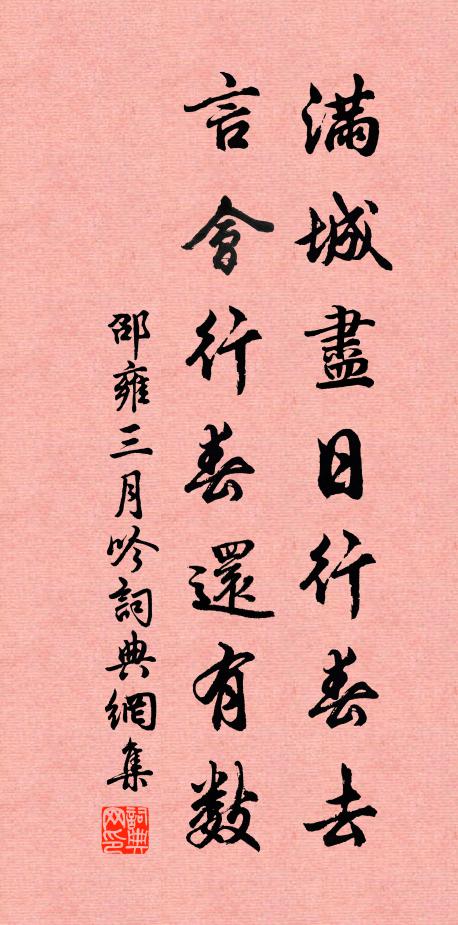 滿城盡日行春去
言會行春還有数
邵雍三月吟詞典網集
詞典网印